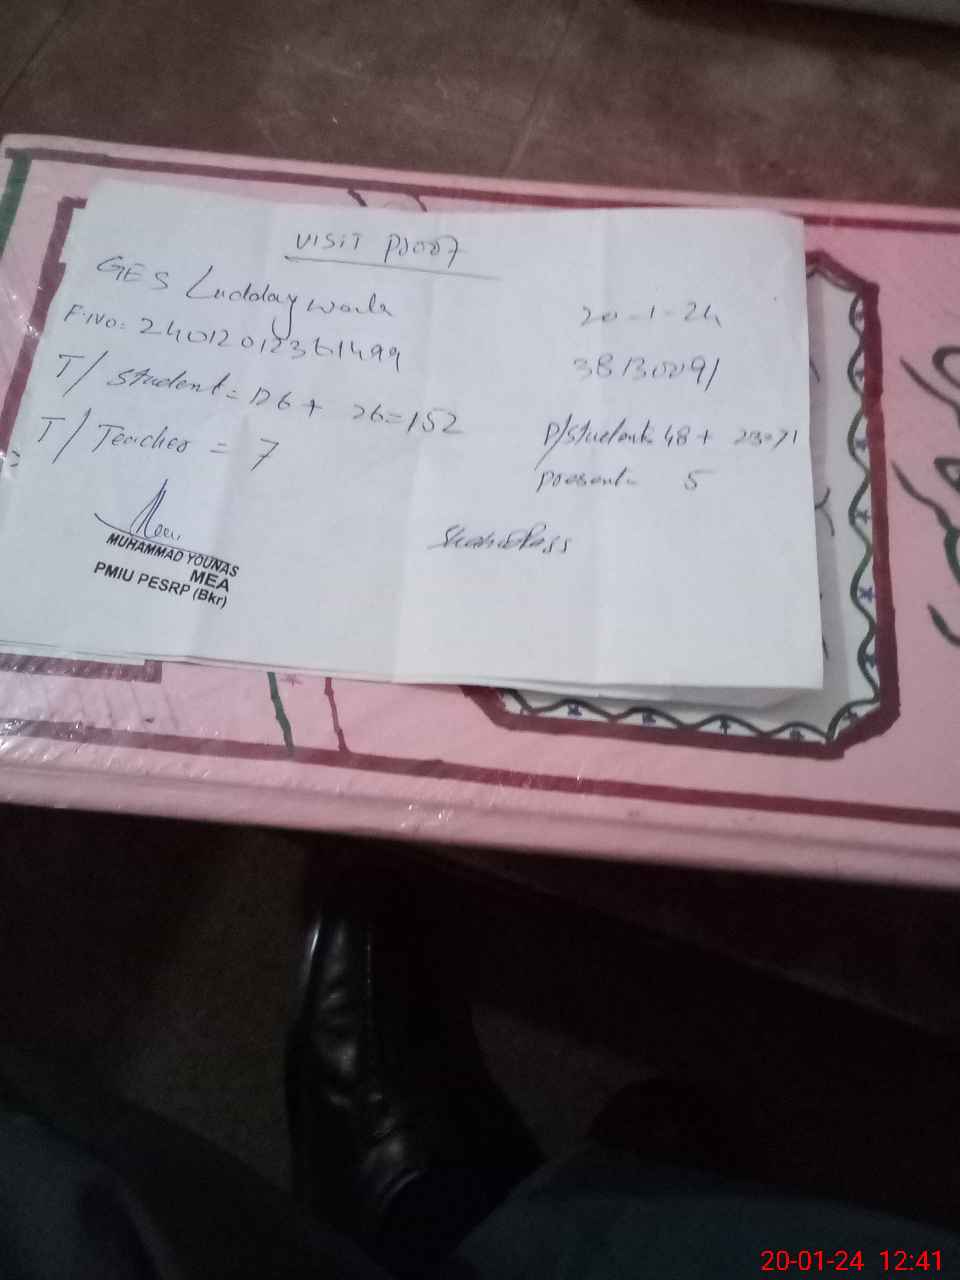 VISIT Proof
GES Luddaywala
20-1-24
F.No= 24012012361499
38130091
T/Student= 126 + 26=152
P/Student= 48 + 23=71
T/Teacher = 7
Present= 5
MUHAMMAD YOUNAS
MEA
PMIU PESRP (Bkr)
20-01-24 12:41